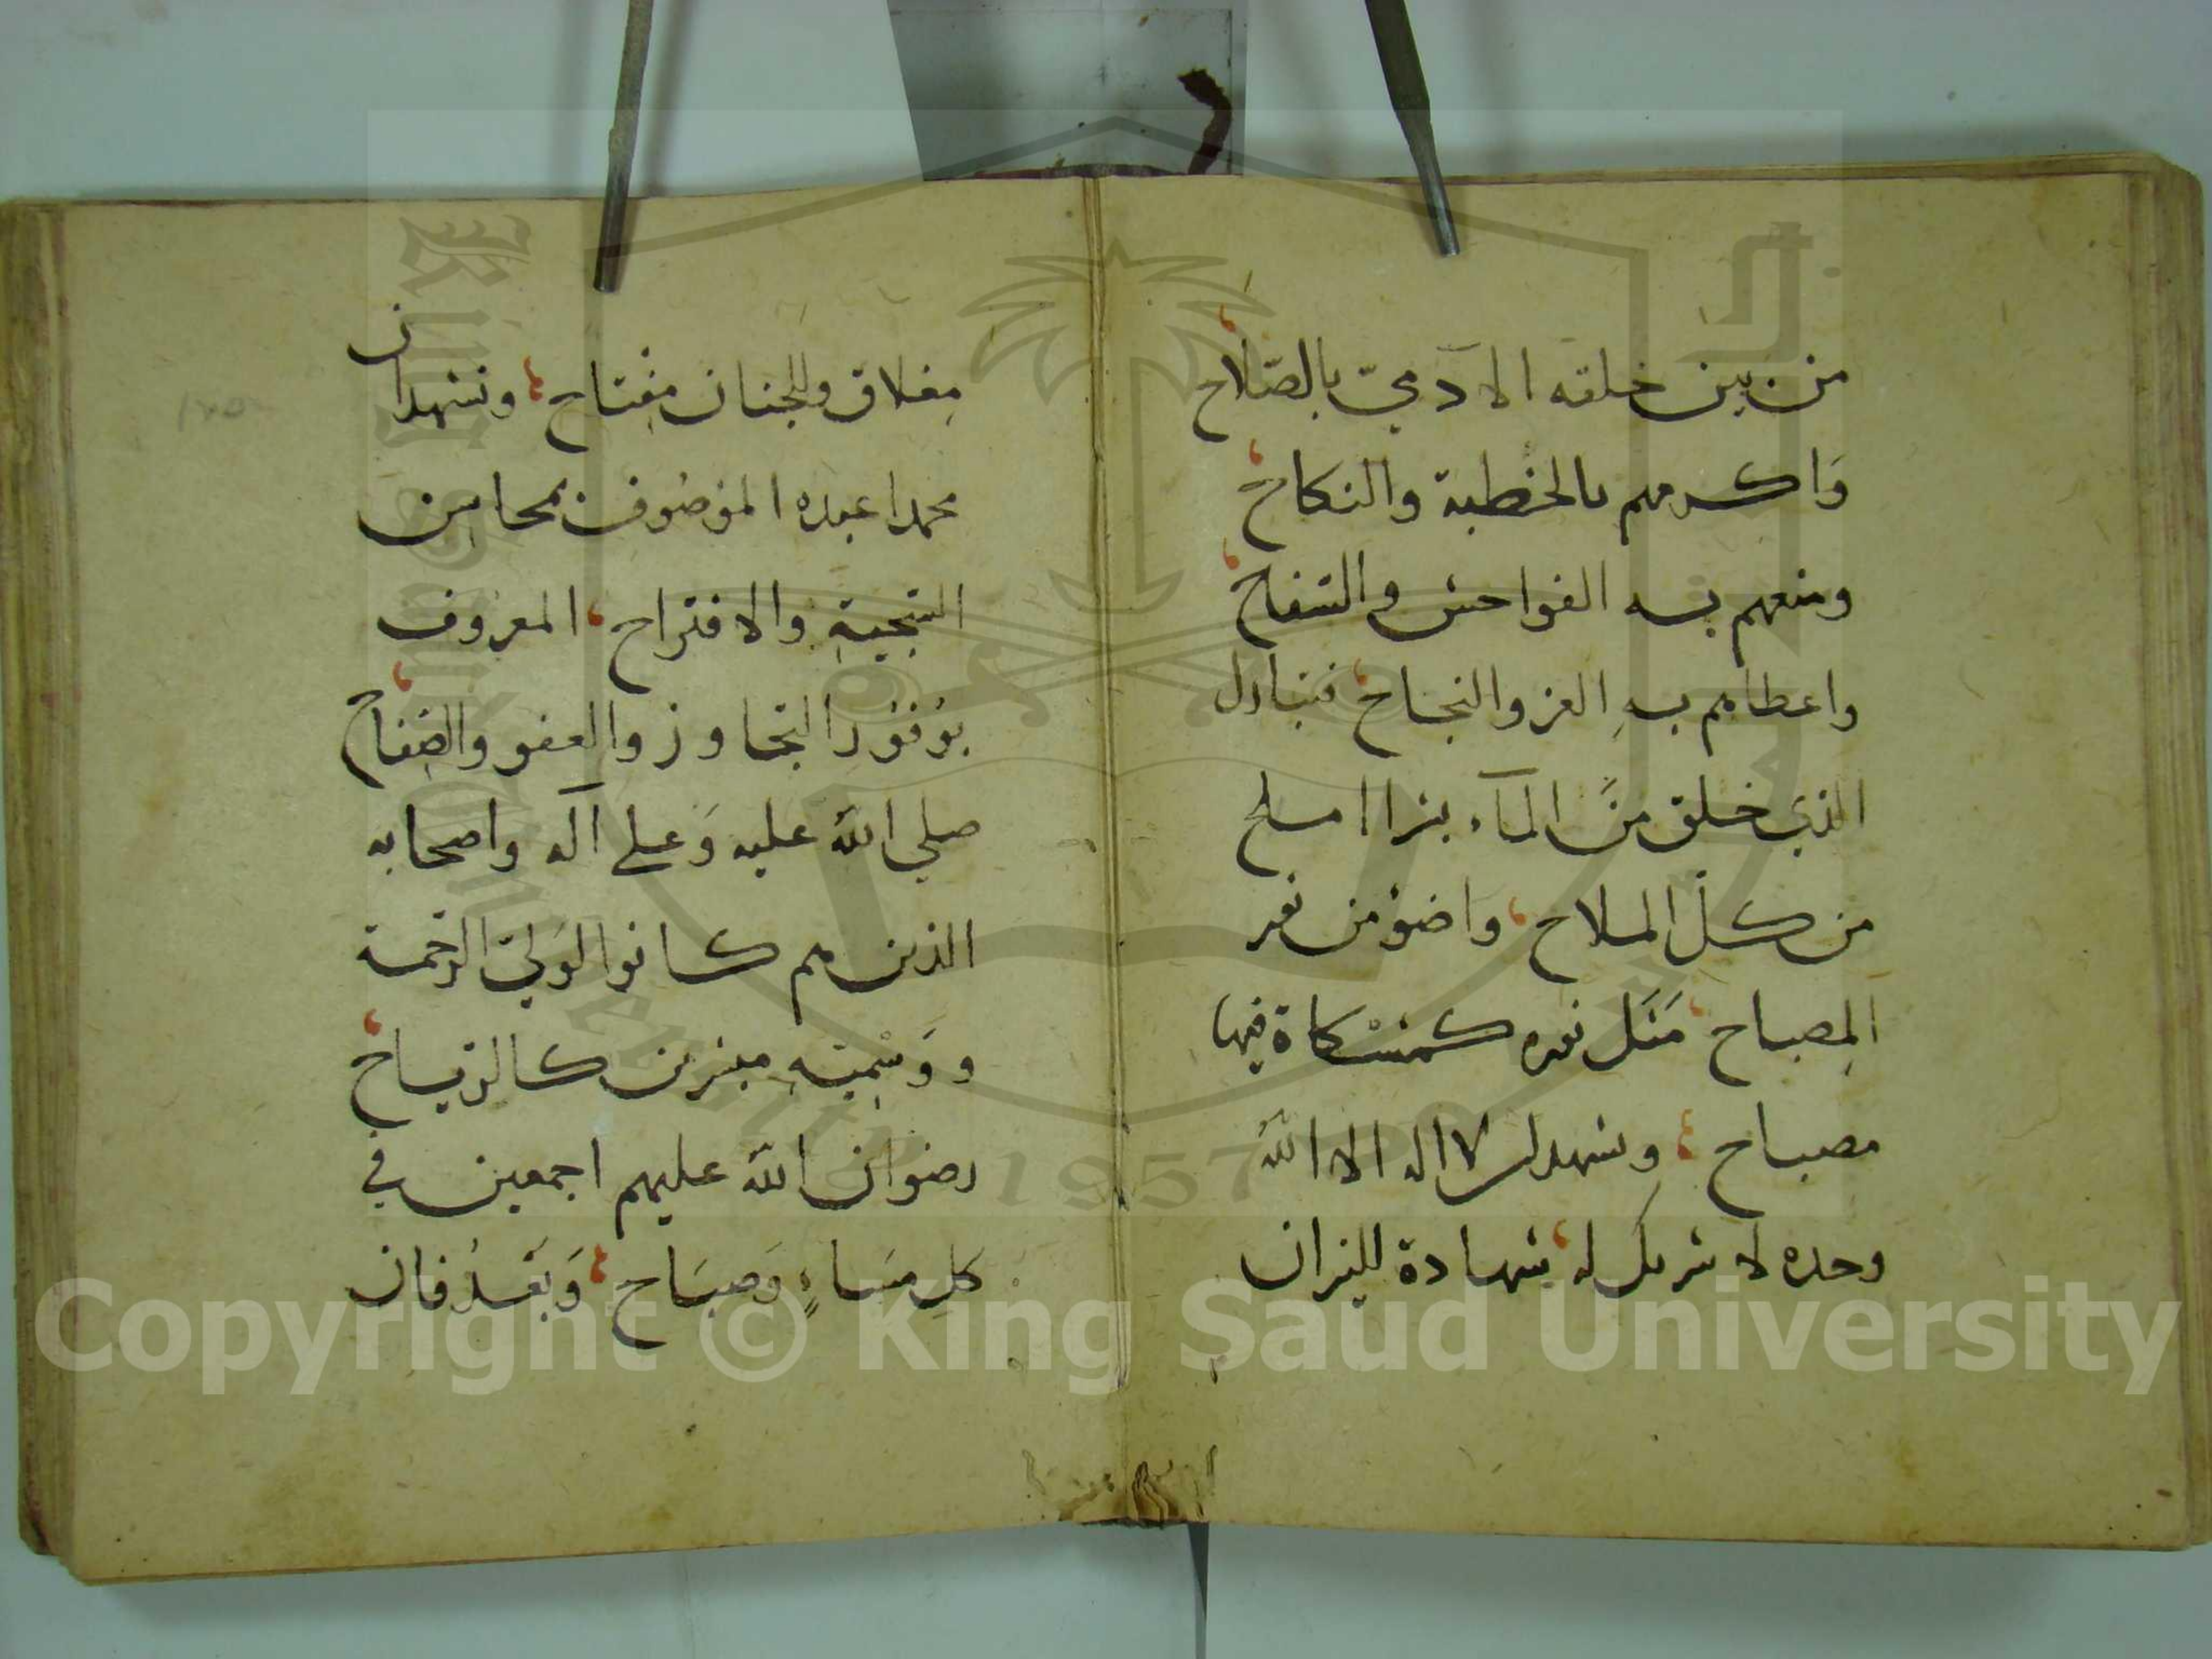 من بين خلقه الادميّ بالصّلاح
وَاكرمهم بالخطبة والنكاح
ومنعهم به الفواحش والسفاح
واعطاهم بهِ العز والنجاح فتبارك
الذي خلق منَ المآء بشرا املح
من كلّ الملاح واضوؤ من نور
المِصباح مَثَل نوره كمشْكاة فيها
مصباح ونشهد ان لا اله الا الله
وحده لا شريك له شهادة للنيران
مِغلاق وللجنان مِفتاح ونشهد ان
محمدا عبده الموصُوف بمحاسِن
السّجيةِ والافتراح المعروف
بوُفُورِ التجاوز والعفو والصفاح
صلي الله عليه وَعلي آله واصحابه
الذين هم كانوا لوَلِيّ الرّحمة
ووَسْمِيّهِ مبشرين كالرّياح
رضوان الله عليهم اجمعين في
كلِ مسَاءٍ وَصبَاح وَبَعْدُ فان
١٢٥
King Saud University
1957
Copyright © King Saud University